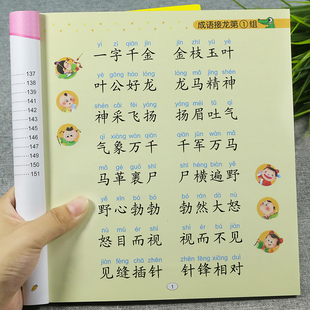 成语接龙第①组
yí zì qiān jīn　jīn zhī yù yè
一字千金　金枝玉叶
yè gōng hào lóng　lóng mǎ jīng shén
叶公好龙　龙马精神
shén cǎi fēi yáng　yáng méi tǔ qì
神采飞扬　扬眉吐气
qì xiàng wàn qiān　qiān jūn wàn mǎ
气象万千　千军万马
mǎ gé guǒ shī　shī héng biàn yě
马革裹尸　尸横遍野
yě xīn bó bó　bó rán dà nù
野心勃勃　勃然大怒
nù mù ér shì　shì ér bú jiàn
怒目而视　视而不见
jiàn fèng chā zhēn　zhēn fēng xiāng duì
见缝插针　针锋相对
1
137
138
139
141
142
143
144
145
147
148
149
150
151